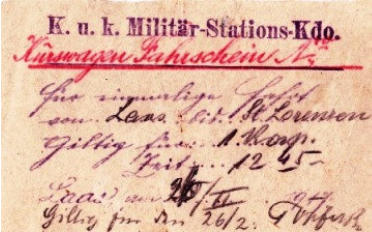 K. u. k. Militär-Stations-Kdo.
Kurswagen Fahrschein Nr
für einmalige Fahrt
von Laas bis St. Lorenzen
Giltig für 1 Korp.
Zeit 12 45
Laas am 26/II 917
Giltig für den 26/2.